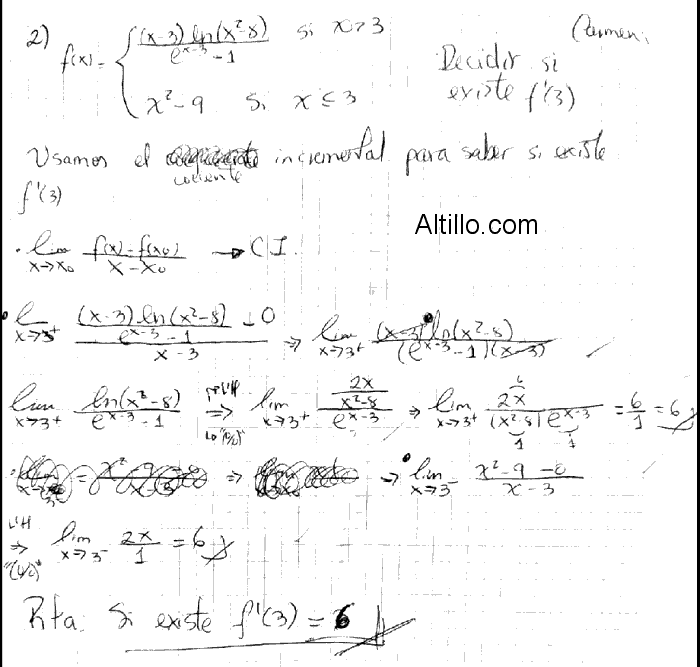 2) f(x) = { (x-3) ln(x²-8) / e^(x-3) - 1 si x>3 Carmen.
x² - 9 si x ≤ 3
Decidir si
existe f'(3)
Usamos el cociente incremental para saber si existe
f'(3)
Altillo.com
· lim x→x₀ f(x) - f(x₀) / x - x₀ → C I.
· lim x→3⁺ ((x-3) ln(x²-8) / e^(x-3) - 1) - 0 / x-3 ⇒ lim x→3⁺ (x-3) ln(x²-8) / (e^(x-3) - 1)(x-3)
lim x→3⁺ ln(x²-8) / e^(x-3) - 1 L'H ⇒ "0/0" lim x→3⁺ (2x / x²-8) / e^(x-3) ⇒ lim x→3⁺ 2x / (x²-8) e^(x-3) = 6/1 = 6
⇒ · lim x→3⁻ x² - 9 - 0 / x - 3
L'H ⇒ "0/0" lim x→3⁻ 2x / 1 = 6
Rta: Si existe f'(3) = 6